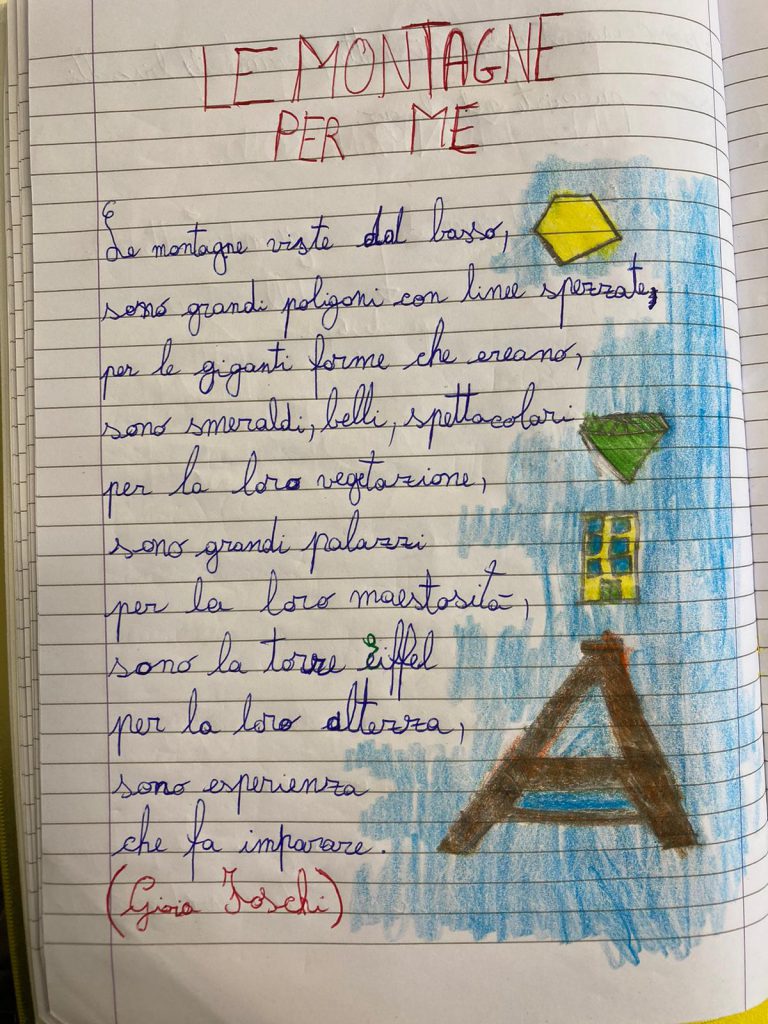 LE MONTAGNE
PER ME
Le montagne viste dal basso,
sono grandi poligoni con linee spezzate,
per le giganti forme che creano,
sono smeraldi, belli, spettacolari
per la loro vegetazione,
sono grandi palazzi
per la loro maestosità,
sono la torre Eiffel
per la loro altezza,
sono esperienza
che fa imparare.
(Gioia Foschi)